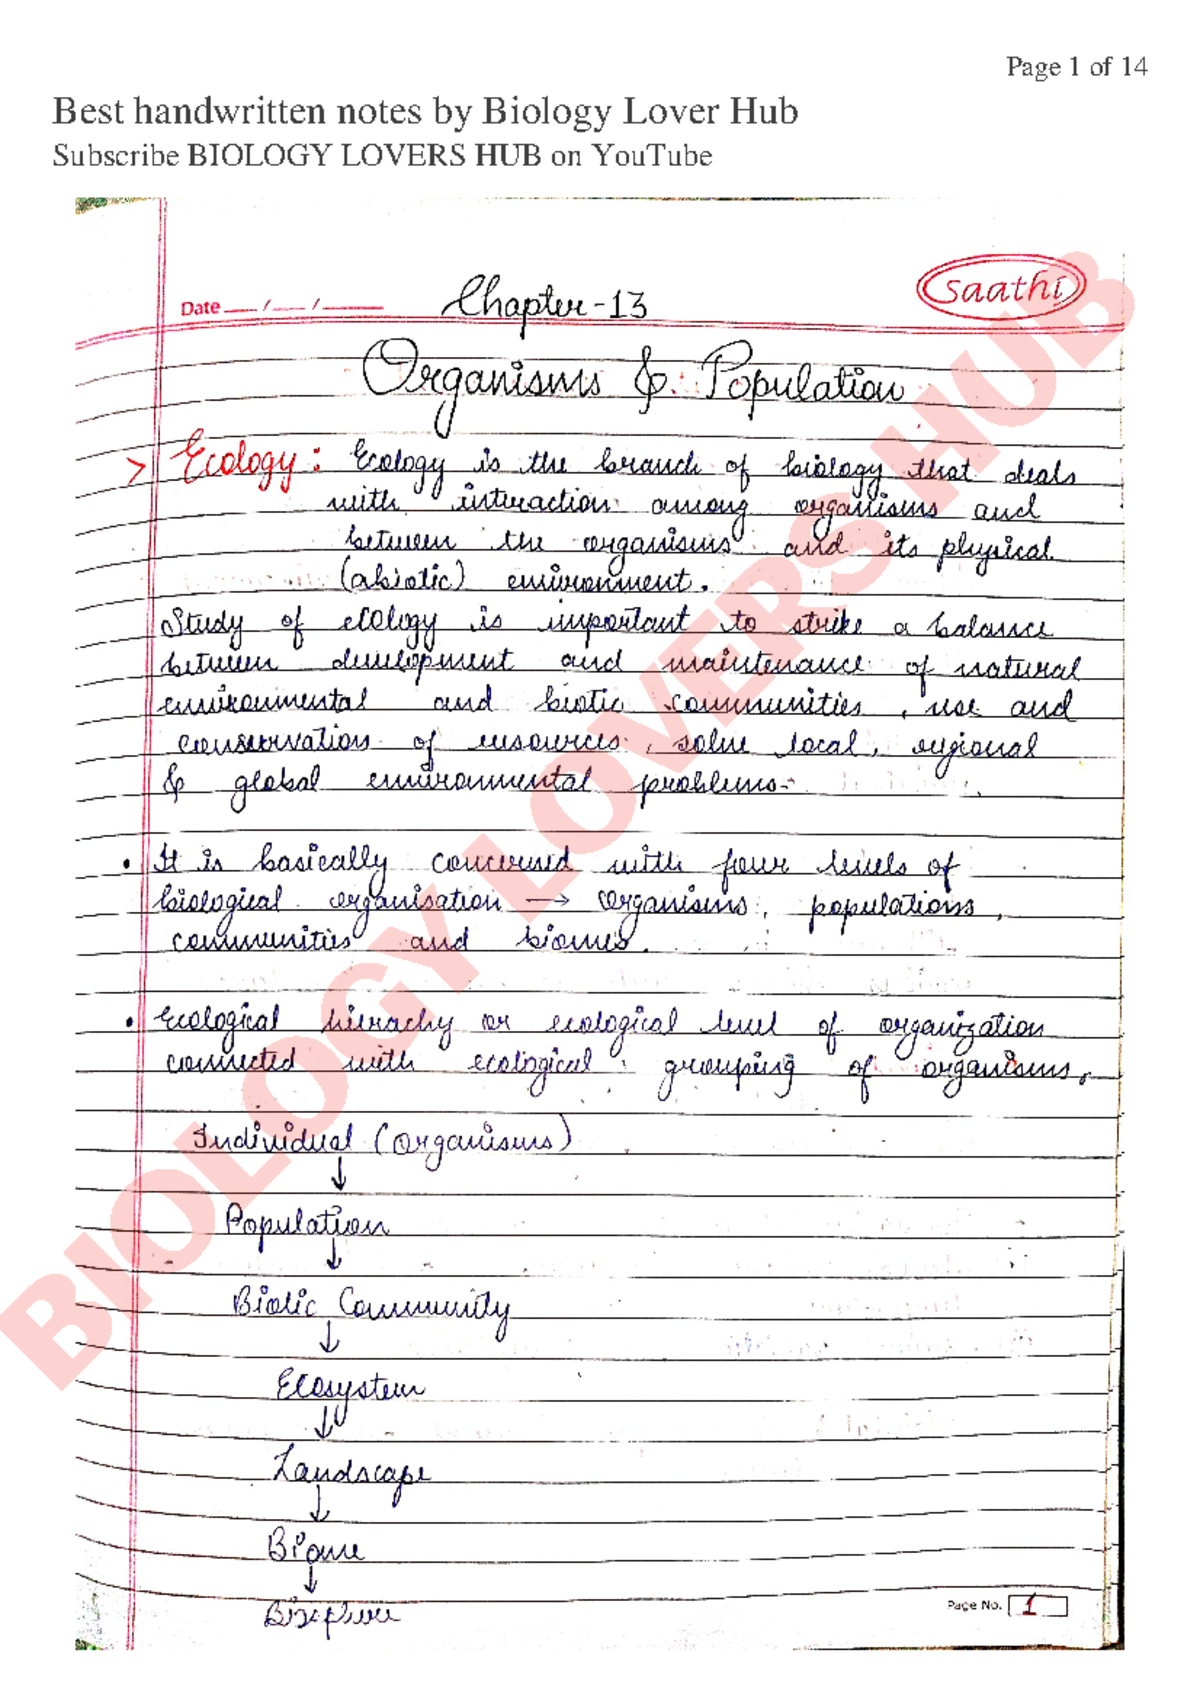 Page 1 of 14
Best handwritten notes by Biology Lover Hub
Subscribe BIOLOGY LOVERS HUB on YouTube
Saathi
Date ___ / ___ / ______
Chapter-13
Organisms & Population
> Ecology : Ecology is the branch of biology that deals
with interaction among organisms and
between the organisms and its physical
(abiotic) environment.
Study of ecology is important to strike a balance
between development and maintenance of natural
environmental and biotic communities, use and
conservation of resources, solve local, regional
& global environmental problems-
• It is basically concerned with four levels of
biological organisation → organisms, populations,
communities and biomes.
• Ecological hierachy or ecological level of organization
connected with ecological grouping of organisms.
Individual (organisms)
↓
Population
↓
Biotic Community
↓
Ecosystem
↓
Landscape
↓
Biome
↓
Biosphere
Page No. 1
BIOLOGY LOVERS HUB